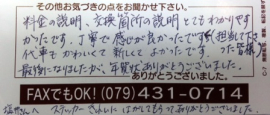 その他お気づきの点をお聞かせ下さい。
料金の説明、交換箇所の説明とてもわかりやす
かったです。丁寧で感じが良かったです。(担当して下
さった皆様)
代車もかわいくて新しくてよかったです。
最後になりましたが、年賀状ありがとうございました。
ありがとうございました。
FAXでもOK! (079)431-0714
さんへ ステッカー きれいに はがしてもらって ありがとうございました。